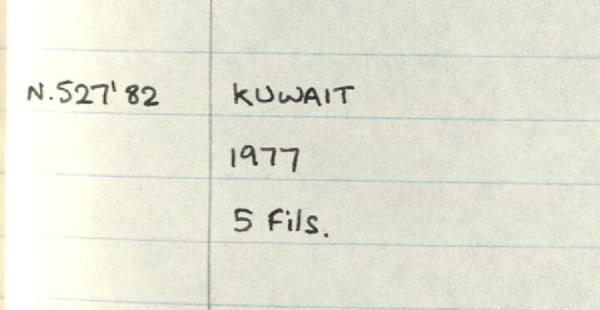 N.527'82 KUWAIT
1977
5 Fils.